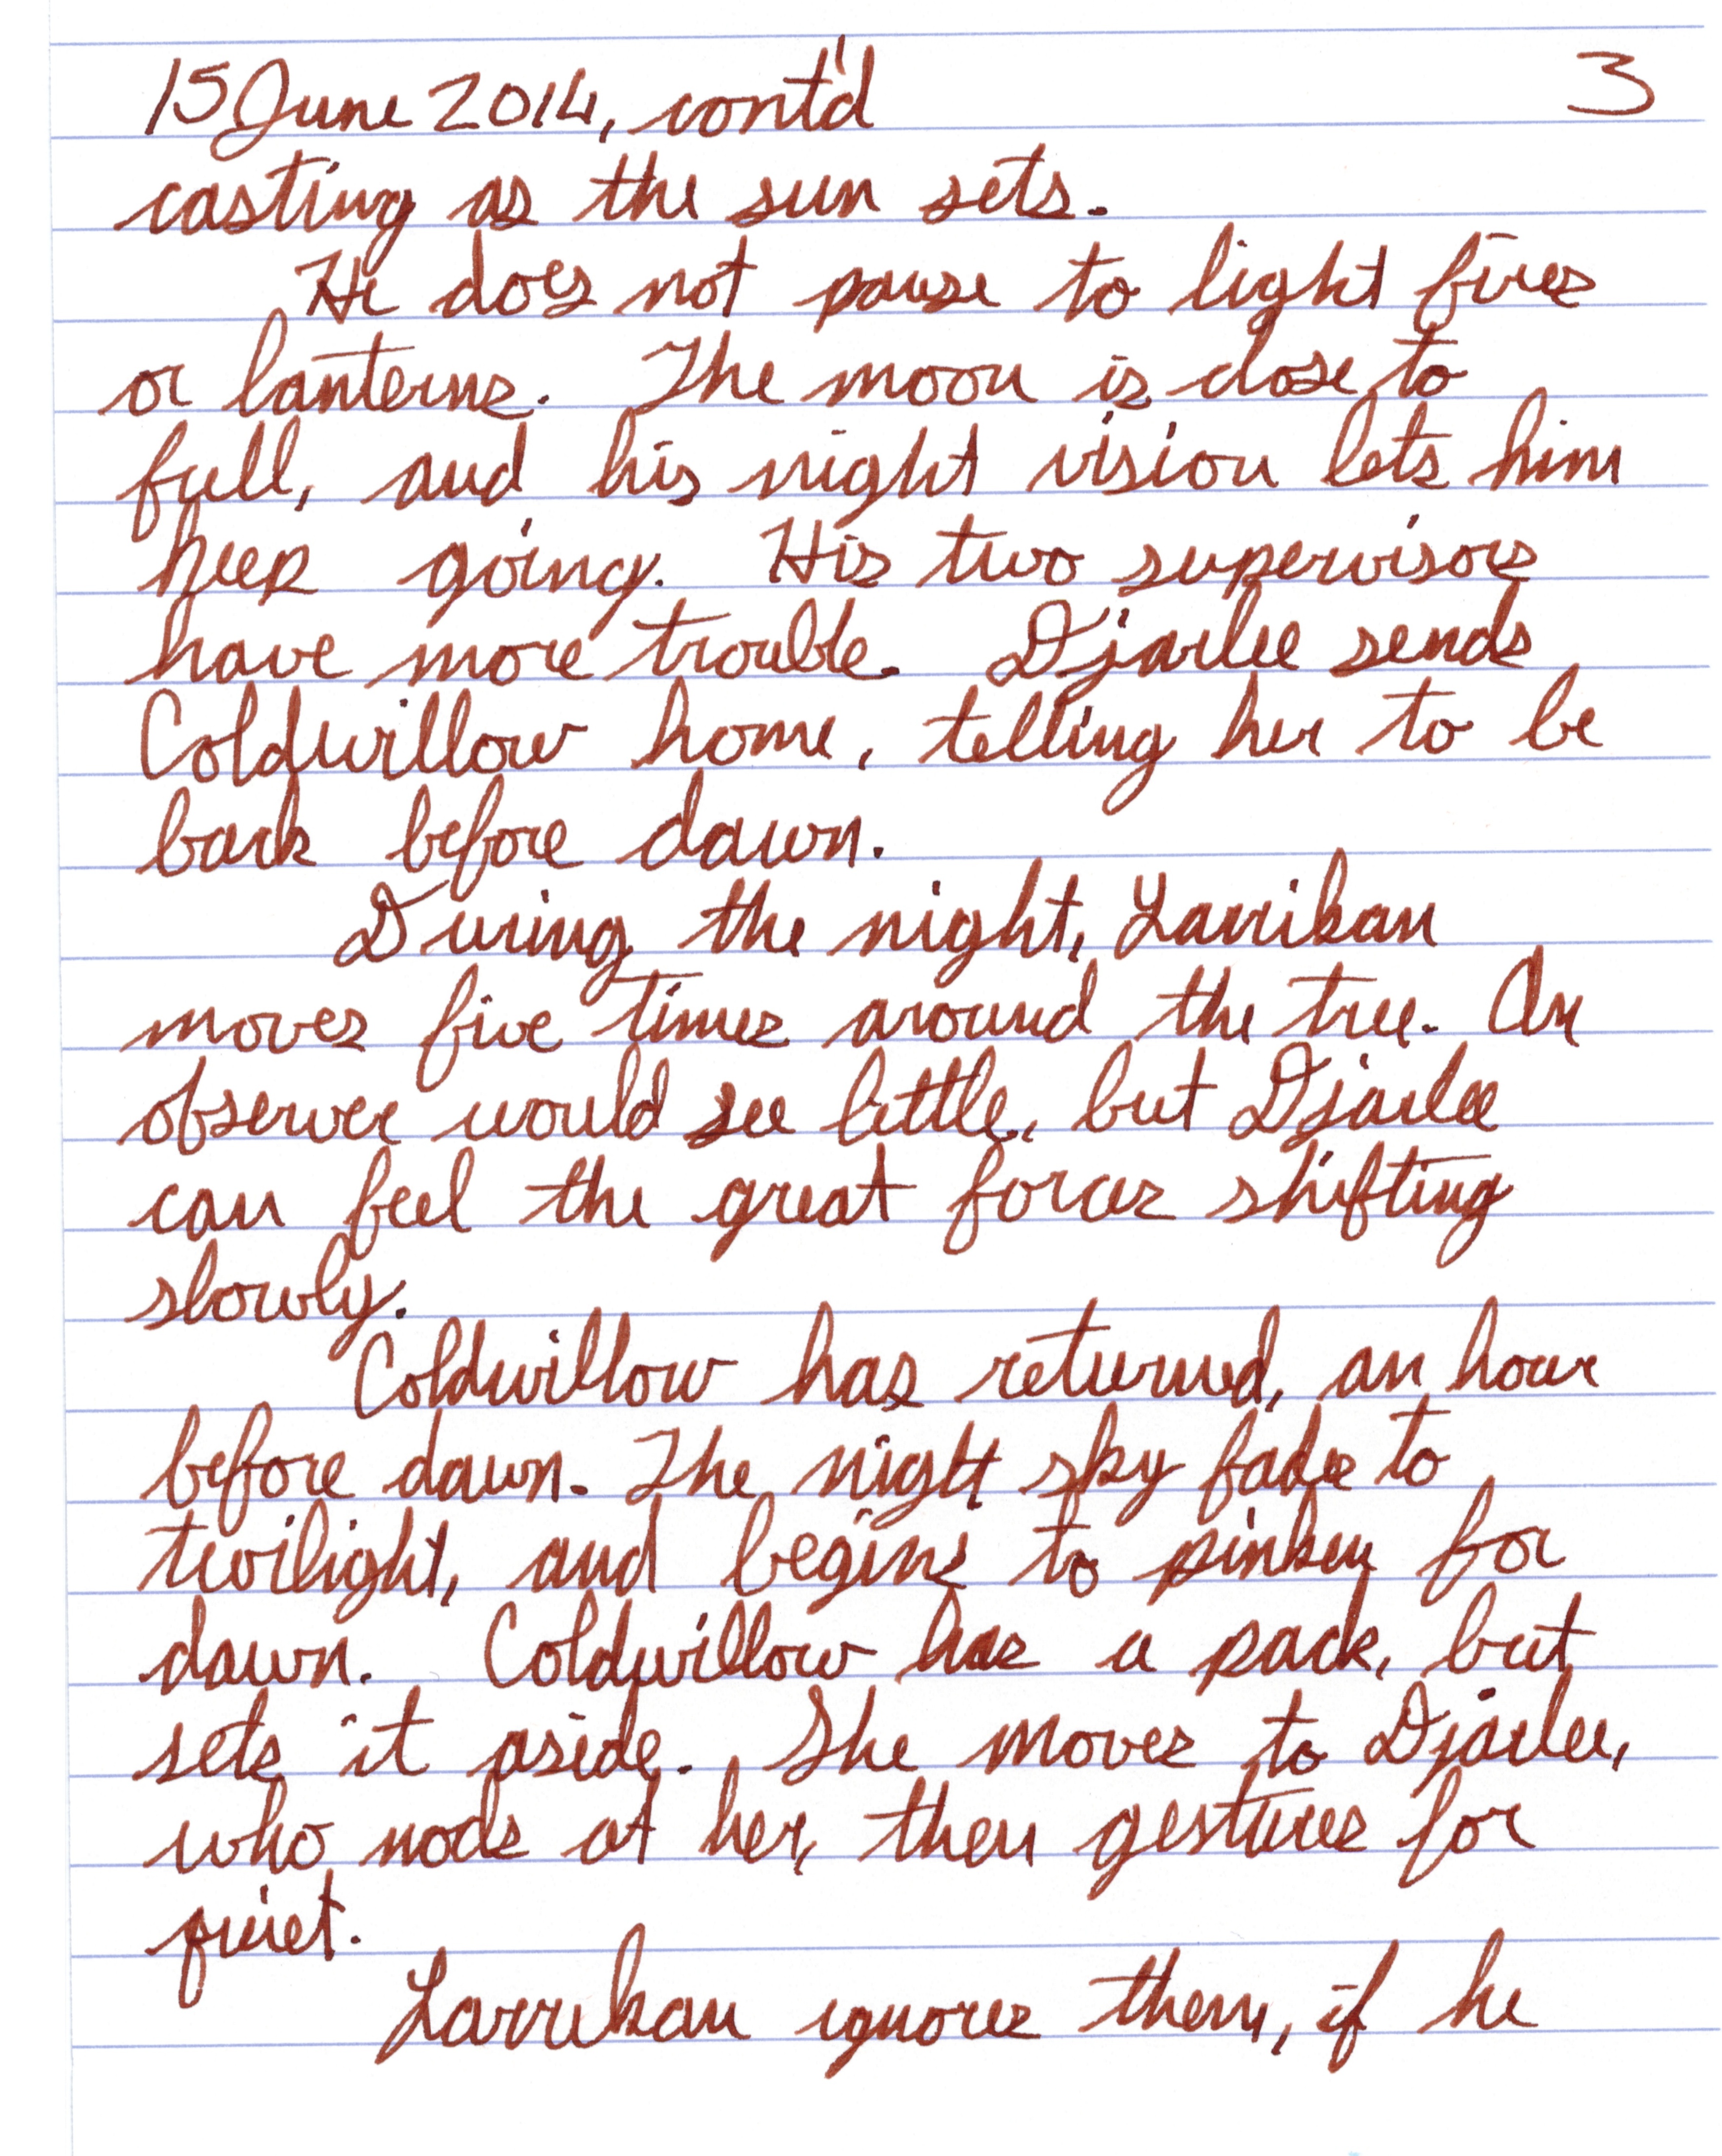 15 June 2014, cont'd 3
casting as the sun sets.
He does not pause to light fires
or lanterns. The moon is close to
full, and his night vision lets him
keep going. His two supervisors
have more trouble. Djarlee sends
Coldwillow home, telling her to be
back before dawn.
During the night, Larrikan
moves five times around the tree. An
observer would see little, but Djarlee
can feel the great forces shifting
slowly.
Coldwillow has returned, an hour
before dawn. The night sky fades to
twilight, and begins to pinken for
dawn. Coldwillow has a pack, but
sets it aside. She moves to Djarlee,
who nods at her, then gestures for
quiet.
Larrikan ignores them, if he